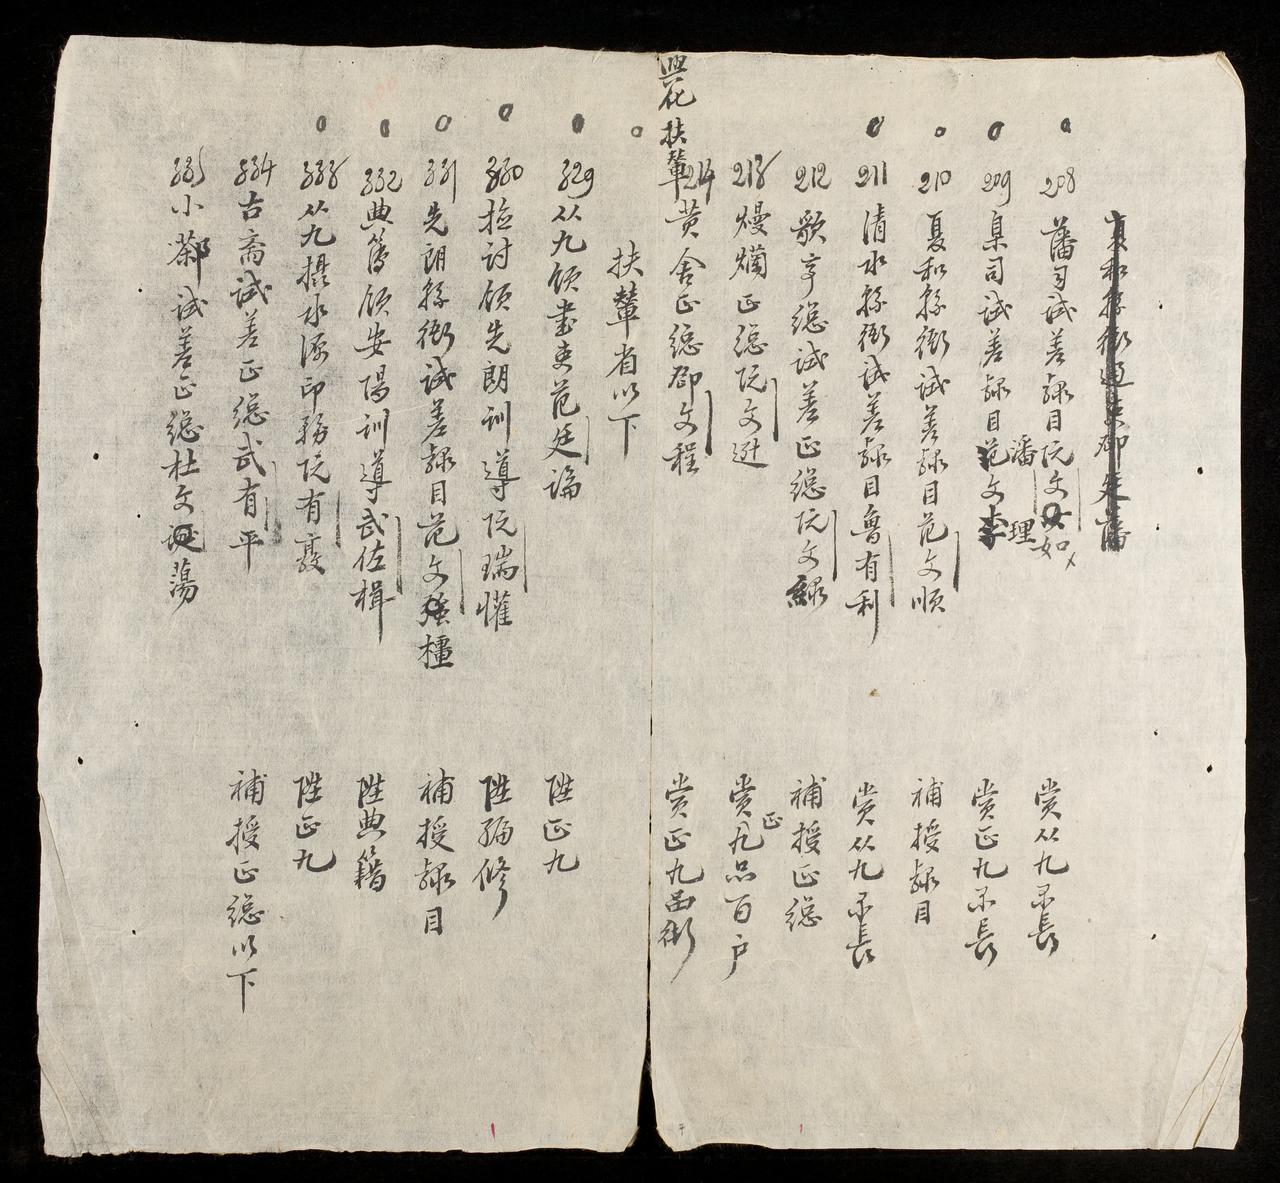 208 藩司試差隸目阮文如 賞从九不長
209 臬司試差隸目潘文理 賞正九不長
210 夏和縣衙試差隸目范文順 補授隸目
211 清水縣衙試差隸目魯有利 賞从九不長
212 歌亭總試差正總阮文綠 補授正總
213 熳爛正總阮文遊 賞正九品百户
214 黄舍正總鄧文程 賞正九品衙
興化扶輦
扶輦省以下
329 从九領書吏范廷論 陞正九
330 檢討領先朗訓導阮瑞懽 陞編修
331 先朗縣衙試差隸目范文橿 補授隸目
332 典簿領安陽訓導武佐楫 陞典籍
333 从九攝水源印務阮有 陞正九
334 古齋試差正總武有平 補授正總以下
335 小 試差正總杜文蕩